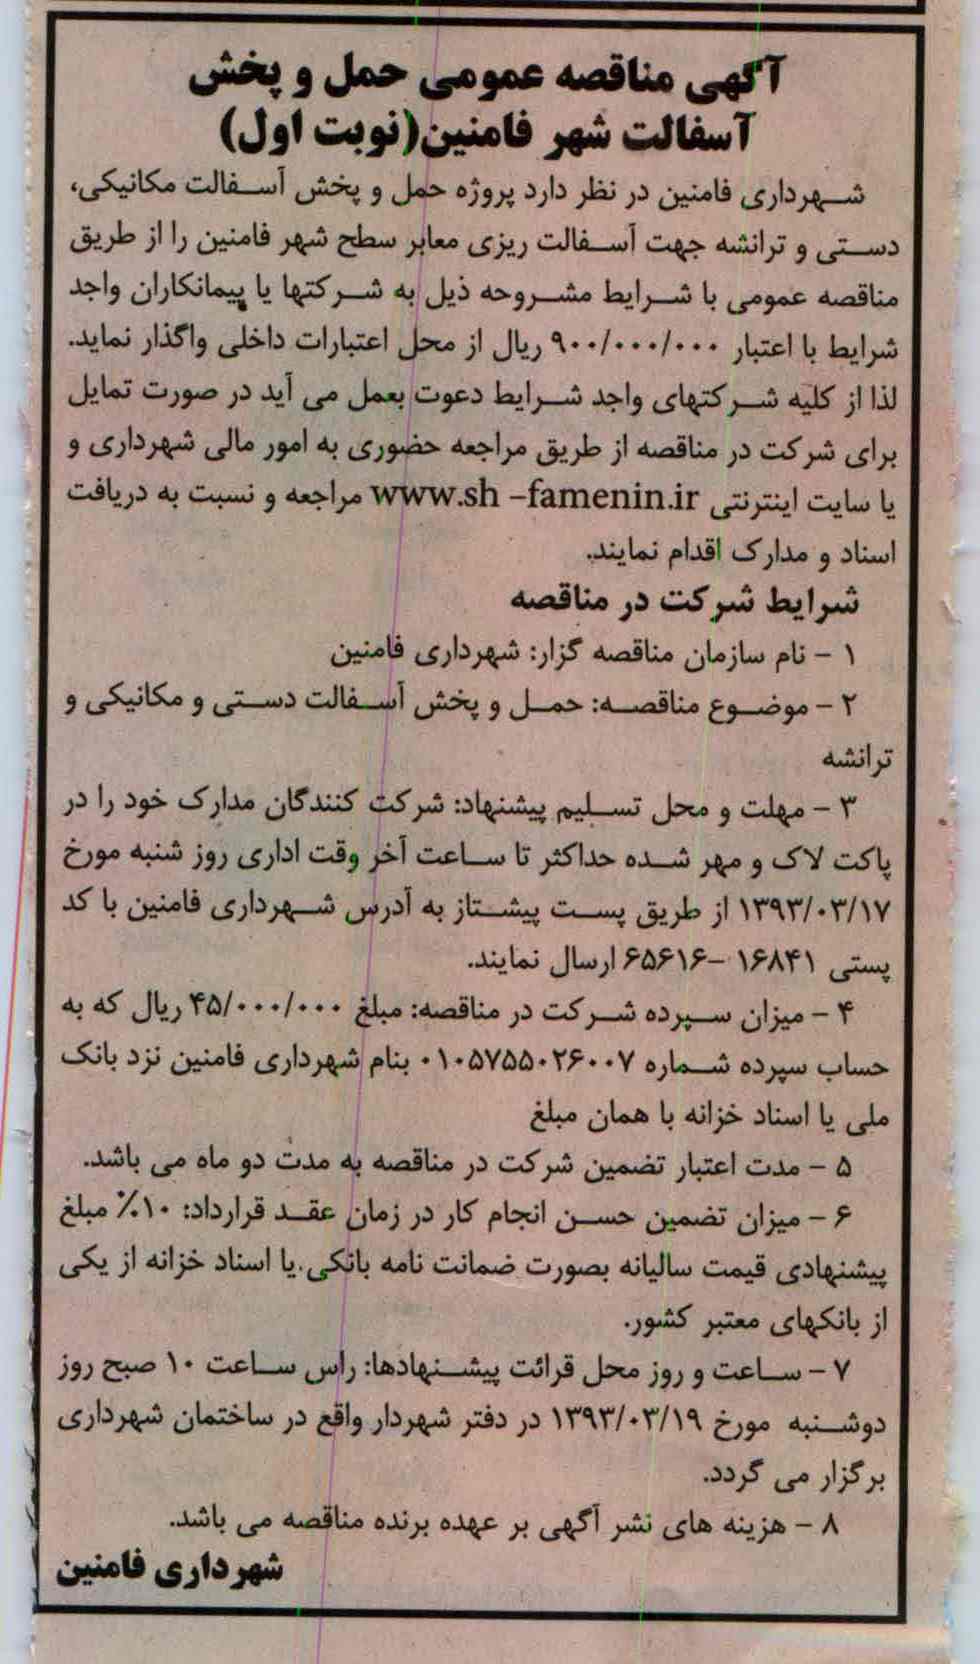 آگهی مناقصه عمومی حمل و پخش
آسفالت شهر فامنین(نوبت اول)
شهرداری فامنین در نظر دارد پروژه حمل و پخش آسفالت مکانیکی،
دستی و ترانشه جهت آسفالت ریزی معابر سطح شهر فامنین را از طریق
مناقصه عمومی با شرایط مشروحه ذیل به شرکتها یا پیمانکاران واجد
شرایط با اعتبار ۹۰۰/۰۰۰/۰۰۰ ریال از محل اعتبارات داخلی واگذار نماید.
لذا از کلیه شرکتهای واجد شرایط دعوت بعمل می آید در صورت تمایل
برای شرکت در مناقصه از طریق مراجعه حضوری به امور مالی شهرداری و
یا سایت اینترنتی www.sh –famenin.ir مراجعه و نسبت به دریافت
اسناد و مدارک اقدام نمایند.
شرایط شرکت در مناقصه
۱ – نام سازمان مناقصه گزار: شهرداری فامنین
۲ – موضوع مناقصه: حمل و پخش آسفالت دستی و مکانیکی و
ترانشه
۳ – مهلت و محل تسلیم پیشنهاد: شرکت کنندگان مدارک خود را در
پاکت لاک و مهر شده حداکثر تا ساعت آخر وقت اداری روز شنبه مورخ
۱۳۹۳/۰۳/۱۷ از طریق پست پیشتاز به آدرس شهرداری فامنین با کد
پستی ۱۶۸۴۱ –۶۵۶۱۶ ارسال نمایند.
۴ – میزان سپرده شرکت در مناقصه: مبلغ ۴۵/۰۰۰/۰۰۰ ریال که به
حساب سپرده شماره ۰۱۰۵۷۵۵۰۲۶۰۰۷ بنام شهرداری فامنین نزد بانک
ملی یا اسناد خزانه با همان مبلغ
۵ – مدت اعتبار تضمین شرکت در مناقصه به مدت دو ماه می باشد.
۶ – میزان تضمین حسن انجام کار در زمان عقد قرارداد: ۱۰٪ مبلغ
پیشنهادی قیمت سالیانه بصورت ضمانت نامه بانکی.یا اسناد خزانه از یکی
از بانکهای معتبر کشور.
۷ – ساعت و روز محل قرائت پیشنهادها: راس ساعت ۱۰ صبح روز
دوشنبه مورخ ۱۳۹۳/۰۳/۱۹ در دفتر شهردار واقع در ساختمان شهرداری
برگزار می گردد.
۸ – هزینه های نشر آگهی بر عهده برنده مناقصه می باشد.
شهرداری فامنین